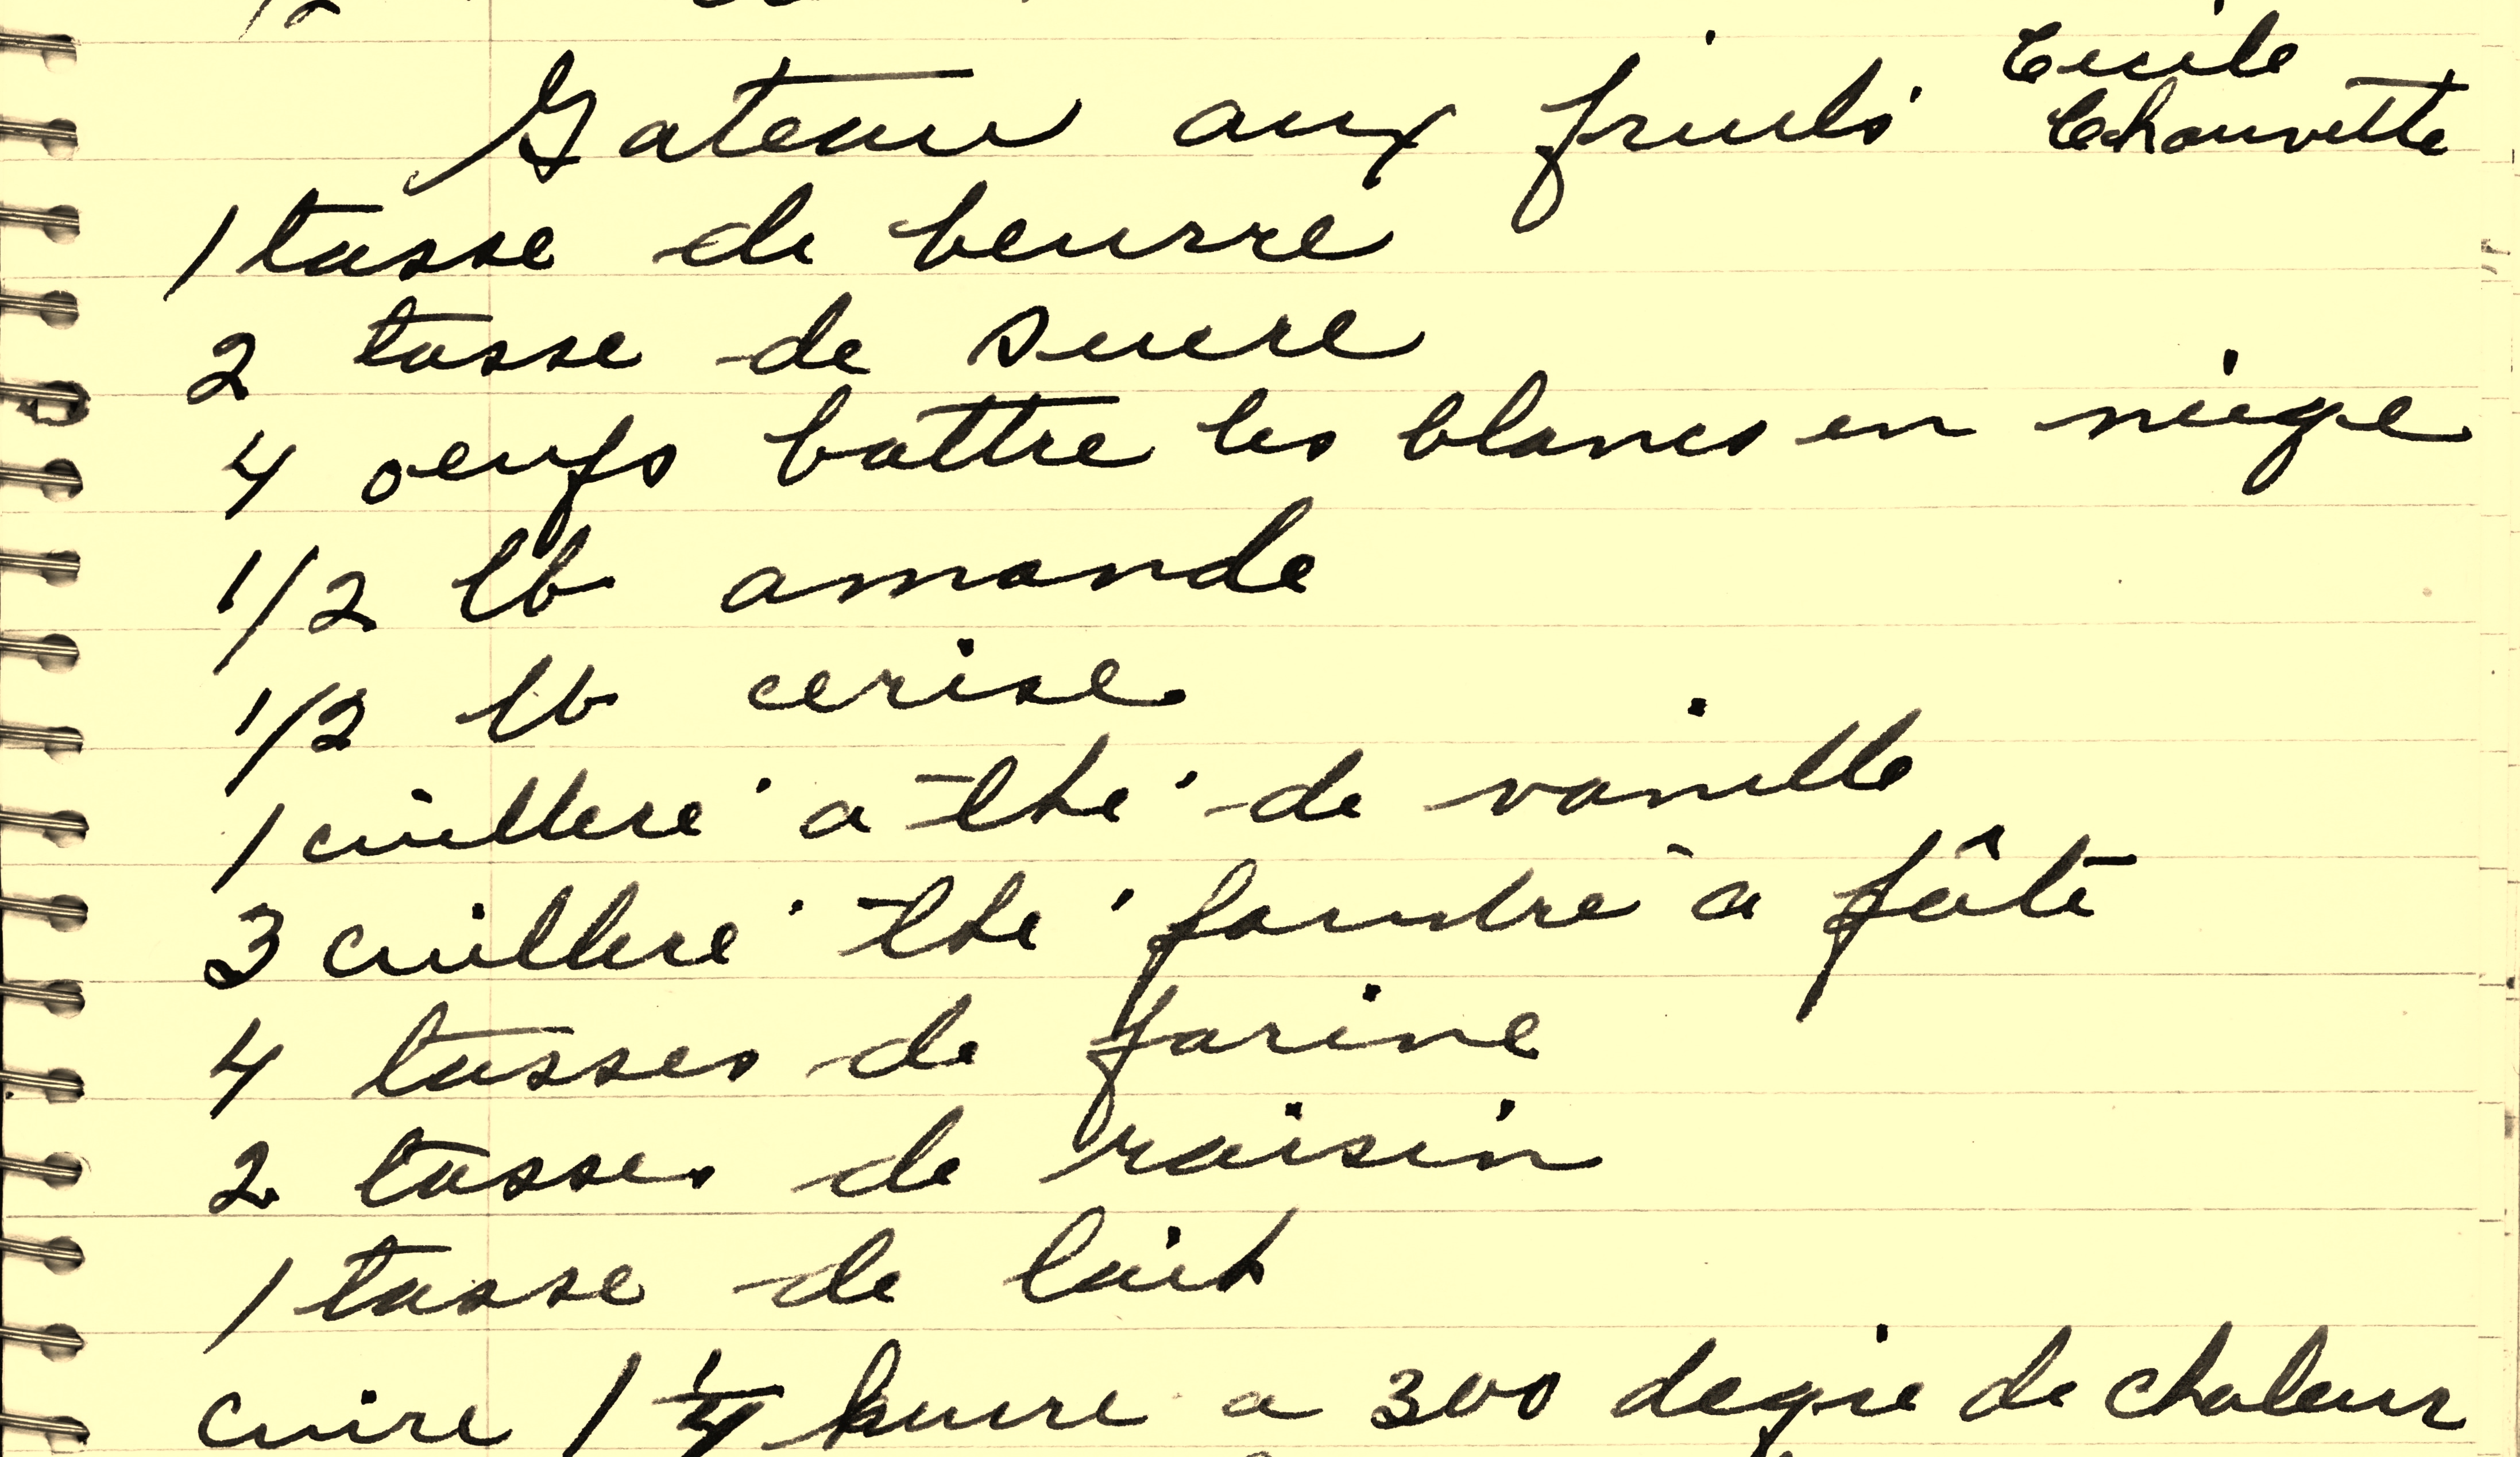 Gateau aux fruits Cecile
Chauvette
1 tasse de beurre
2 tasse de sucre
4 oeufs battre les blancs en neige
1/2 lb amande
1/2 lb cerise
1 cuilleré a thé de vanille
3 cuilleré thé poudre à pâte
4 tasses de farine
2 tasses de raisin
1 tasse de lait
cuire 1 1/4 heure a 300 degre de chaleur